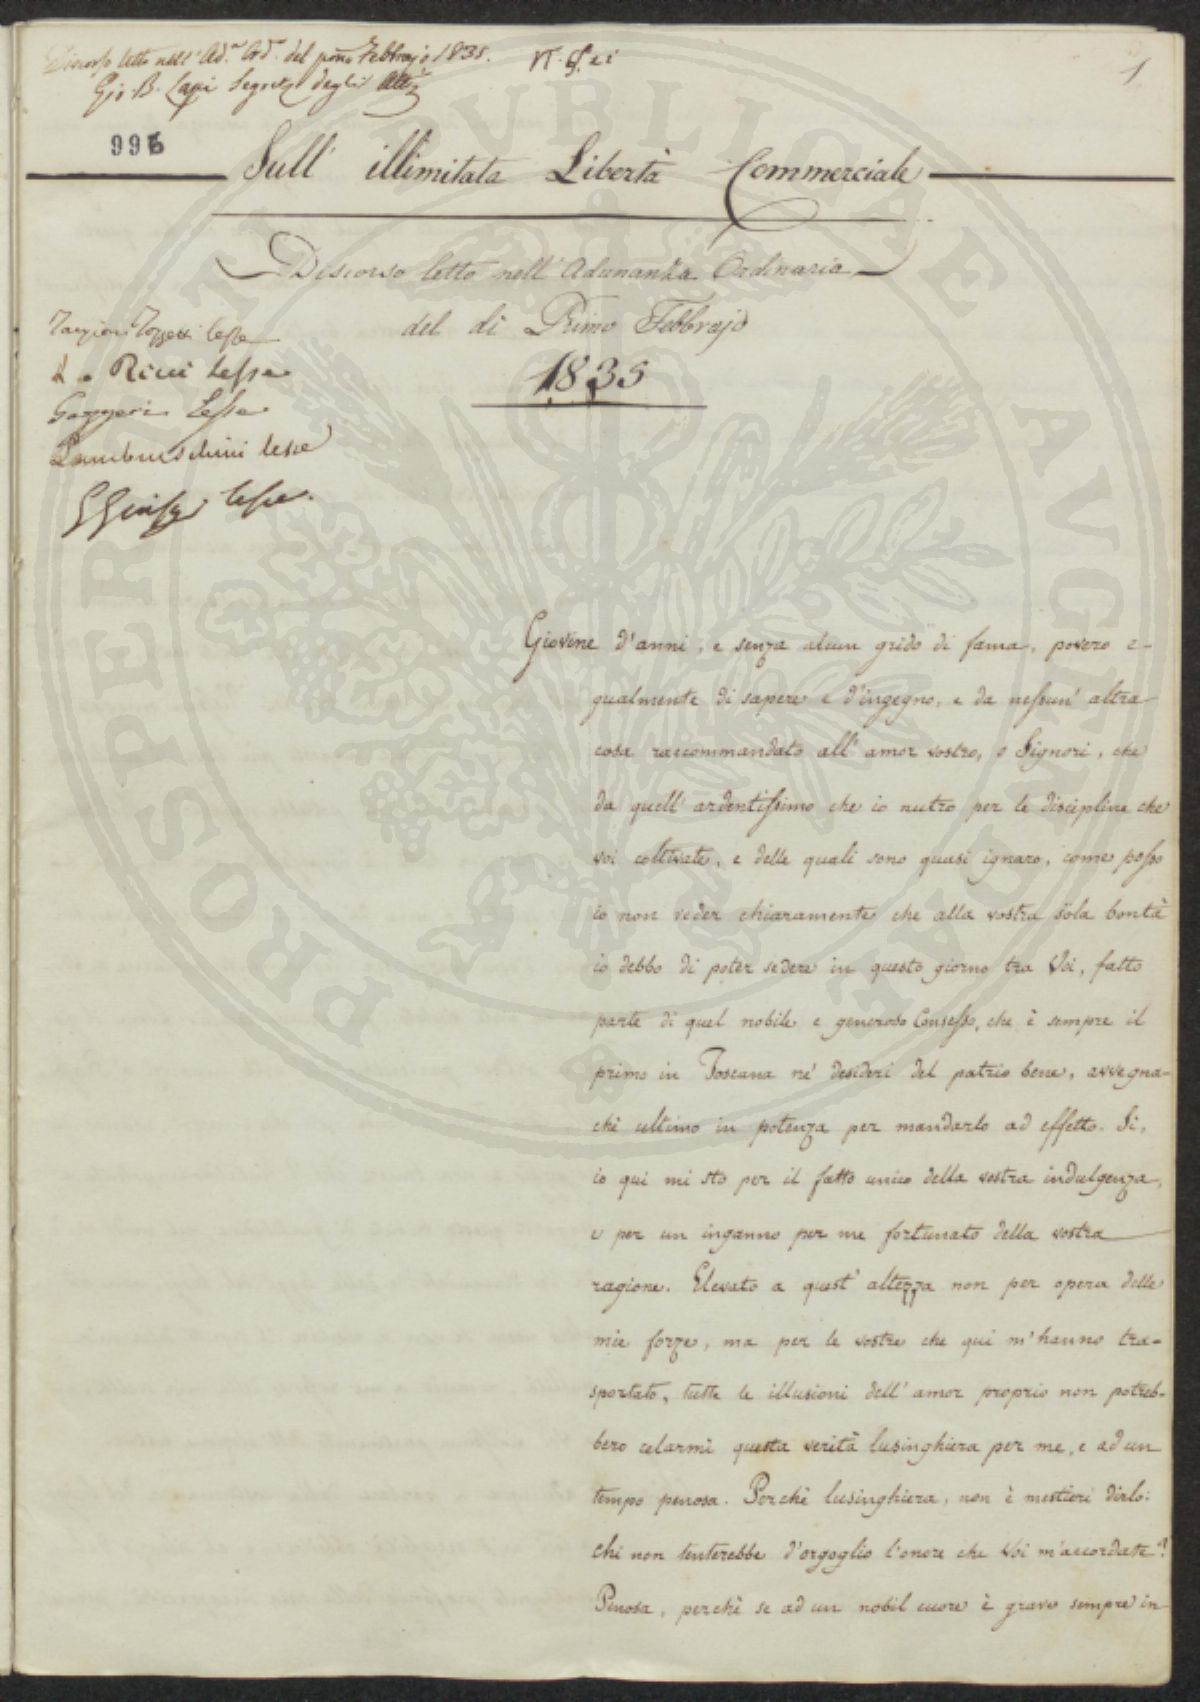 Discorso letto nell'Ad.a Ord.a del pmo Febbrajo 1835.
Gio. B. Lapi Segret. degli Atti
1
996
Sull' illimitata Libertà Commerciale
Discorso letto nell'Adunanza Ordinaria
del dì Primo Febbrajo
1835
Targioni Tozzetti lesse
Ricci lesse
Gazzeri Lesse
Lambruschini lesse
lesse.
Giovine d'anni, e senza alcun grido di fama, povero e-
gualmente di sapere e d'ingegno, e da nessun' altra
cosa raccommandato all' amor vostro, o Signori, che
da quell' ardentissimo che io nutro per le discipline che
voi coltivate, e delle quali sono quasi ignaro, come posso
io non veder chiaramente che alla vostra sola bontà
io debbo di poter sedere in questo giorno tra Voi, fatto
parte di quel nobile e generoso Consesso, che è sempre il
primo in Toscana ne' desideri del patrio bene, avvegna-
chè ultimo in potenza per mandarlo ad effetto. Si,
io qui mi sto per il fatto unico della vostra indulgenza,
e per un inganno per me fortunato della vostra
ragione. Elevato a quest' altezza non per opera delle
mie forze, ma per le vostre che qui m'hanno tra-
sportato, tutte le illusioni dell' amor proprio non potreb-
bero celarmi questa verità lusinghiera per me, e ad un
tempo penosa. Perchè lusinghiera, non è mestieri dirlo:
chi non tenterebbe d'orgoglio l'onore che Voi m'accordate?
Penosa, perchè se ad un nobil cuore è grave sempre in-
PROSPERITATI PVBLICAE AVGENDAE